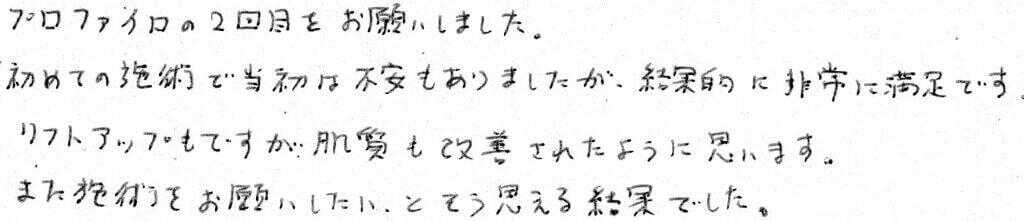 プロファイロの2回目をお願いしました。
初めての施術で当初は不安もありましたが、結果的に非常に満足です。
リフトアップもですが肌質も改善されたように思います。
また施術をお願いしたい、とそう思える結果でした。